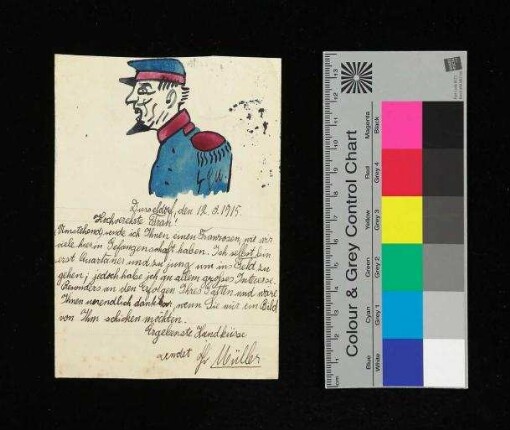 Düsseldorf, den 12. 3. 1915.
Hochverehrte Frau!
Umstehend sende ich Ihnen einen Franzosen, wie wir
viele hier in Gefangenschaft haben. Ich selbst bin
erst Quartaner und zu jung um in Feld zu
gehen; jedoch habe ich an allem großes Interesse.
Besonders an den Erfolgen Ihres Gatten und wäre
Ihnen unendlich dankbar wenn Sie mir ein Bild
von Ihm schicken möchten.
Ergebenste Handküsse
sendet Müller
Colour & Grey Control Chart
Blue Cyan Green Yellow Red Magenta
White Grey 1 Grey 2 Grey 3 Grey 4 Black